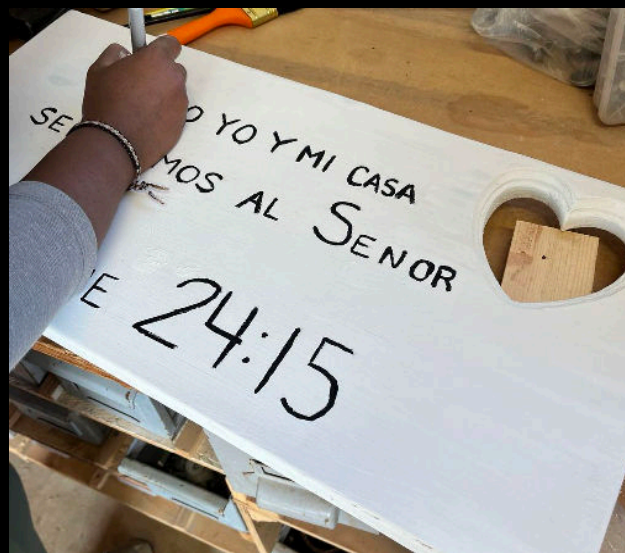 O YO Y MI CASA
SE MOS AL SENOR
E 24:15